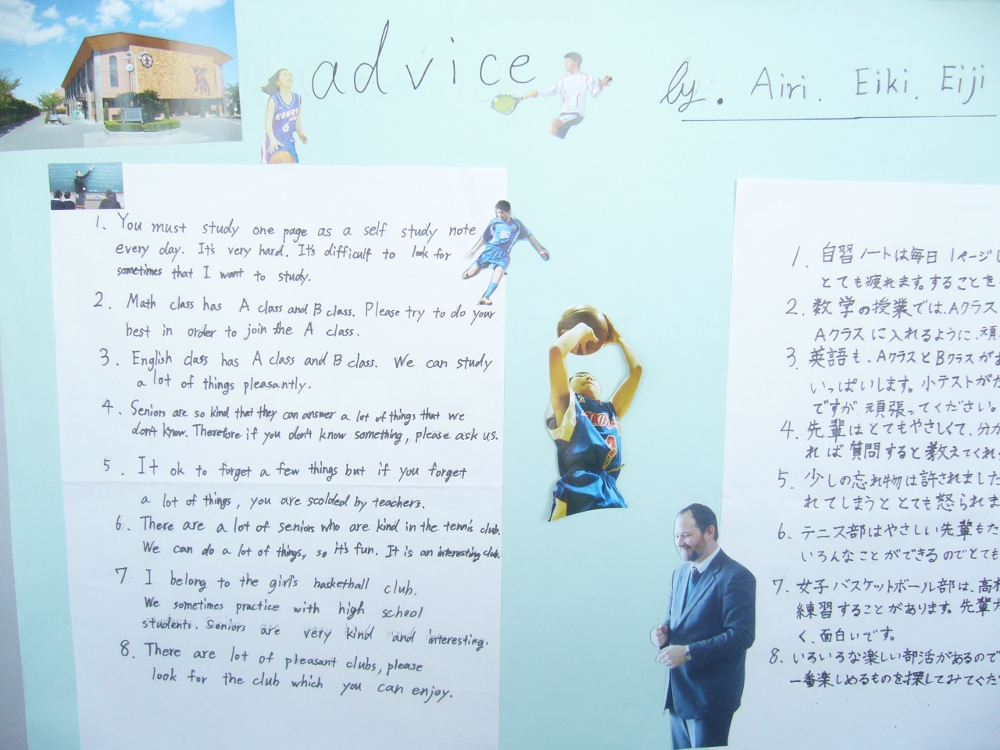 advice
by. Airi. Eiki. Eiji
1. You must study one page as a self study note
every day. It's very hard. It's difficult to look for
sometimes that I want to study.
2. Math class has A class and B class. Please try to do your
best in order to join the A class.
3. English class has A class and B class. We can study
a lot of things pleasantly.
4. Seniors are so kind that they can answer a lot of things that we
don't know. Therefore if you don't know something, please ask us.
5. It ok to forget a few things but if you forget
a lot of things, you are scolded by teachers.
6. There are a lot of seniors who are kind in the tennis club.
We can do a lot of things, so it's fun. It is an interesting club.
7. I belong to the girl's basketball club.
We sometimes practice with high school
students. Seniors are very kind and interesting.
8. There are lot of pleasant clubs, please
look for the club which you can enjoy.
1. 自習ノートは毎日1ページ
とても疲れます。することを
2. 数学の授業では、Aクラス
Aクラスに入れるように、頑
3. 英語も、AクラスとBクラスが
いっぱいします。小テストが
ですが、頑張ってください。
4. 先輩はとてもやさしくて、分か
れば質問すると教えてくれ
5. 少しの忘れ物は許されました
れてしまうととても怒られま
6. テニス部はやさしい先輩もた
いろんなことができるのでとても
7. 女子バスケットボール部は、高校
練習することがあります。先輩
く、面白いです。
8. いろいろな楽しい部活があるので
一番楽しめるものを探してみてくだ